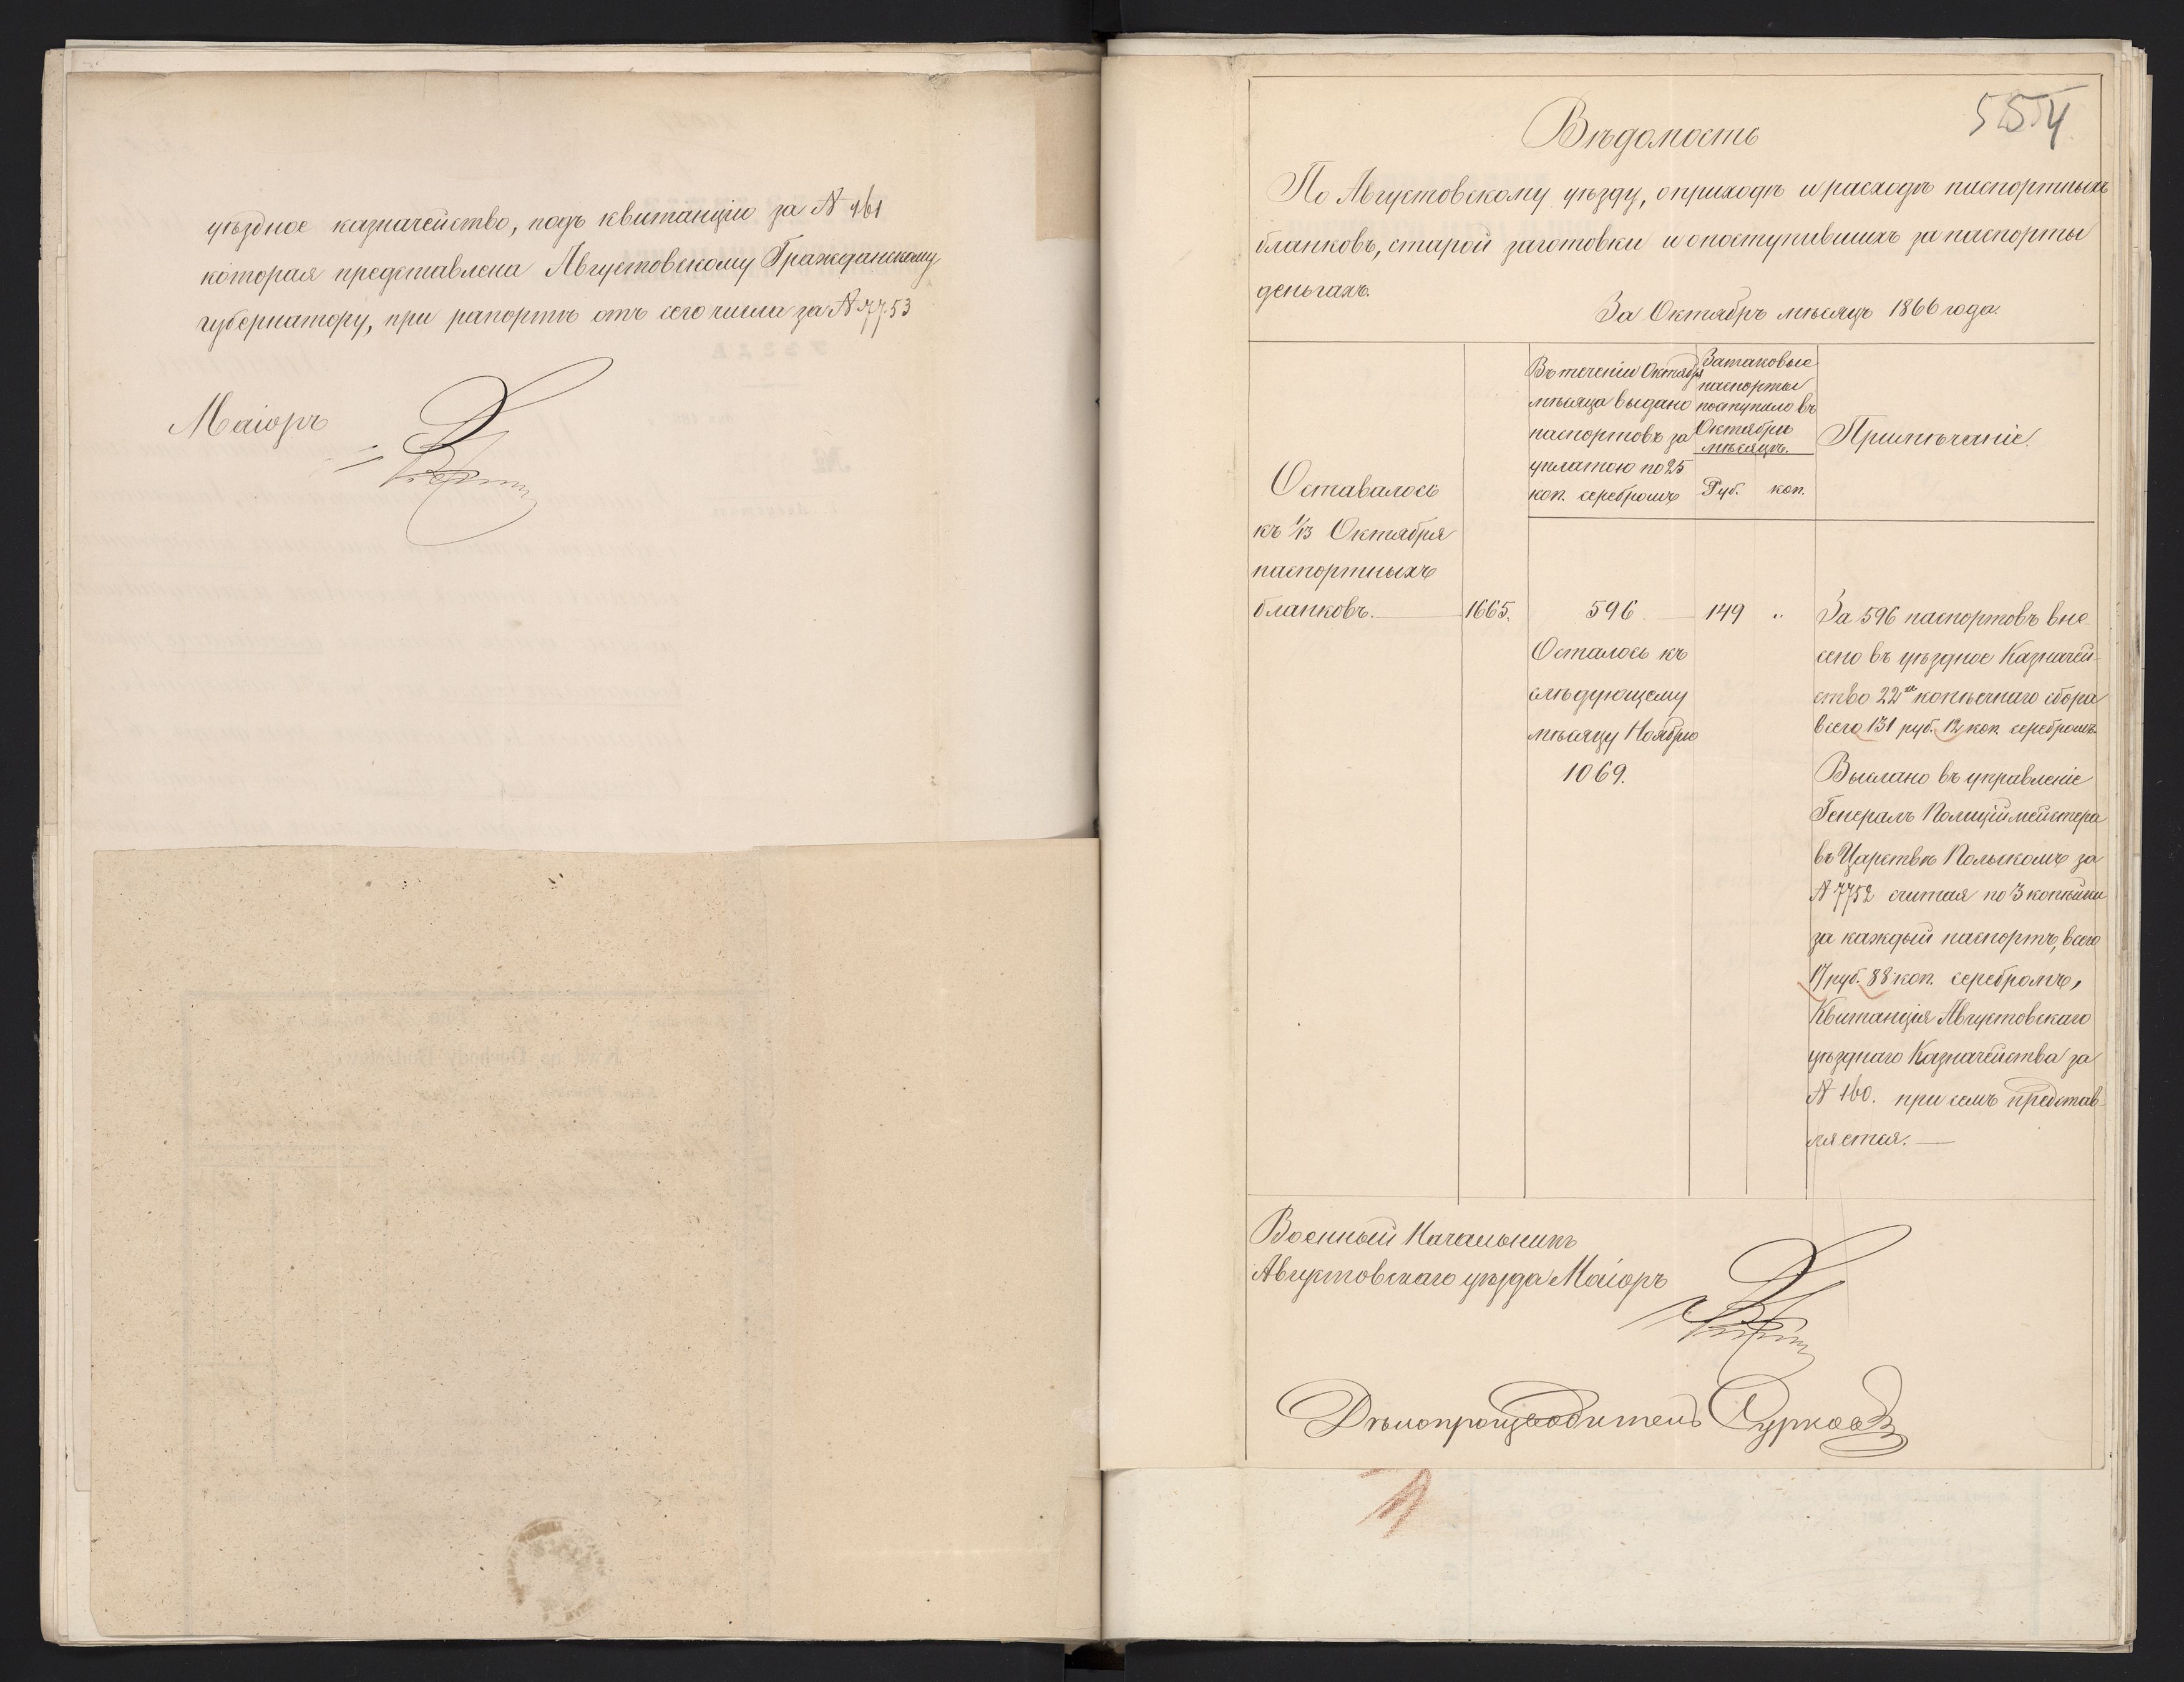 уѣздное казначейство, подъ квитанцію за № 161
которая представлена Августовскому Гражданскому
губернатору, при рапортѣ отъ сего числа за № 7753
Маіоръ
554
Вѣдомость
По Августовскому уѣзду, о приходѣ и расходѣ паспортныхъ
бланковъ, старой заготовки и о поступившихъ за паспорты
деньгахъ.
За Октябрь мѣсяцъ 1866 года.
Оставалось
къ 1/13 Октября
паспортныхъ
бланковъ.
1665.
Въ теченіи Октября
мѣсяца выдано
паспортовъ за
уплатою по 25
коп. серебромъ
596
Осталось къ
слѣдующему
мѣсяцу Ноябрю
1069.
За таковые
паспорты
поступило въ
Октябрѣ
мѣсяцѣ.
Руб. коп.
149 "
Примѣчаніе.
За 596 паспортовъ вне-
сено въ уѣздное Казначей-
ство 22х копѣечнаго сбора
всего 131 руб. 12 коп. серебромъ.
Выслано въ управленіе
Генералъ Полиціймейстера
въ Царствѣ Польскомъ за
№ 7752 считая по 3 копѣйки
за каждый паспортъ, всего
17 руб. 88 коп. серебромъ,
Квитанція Августовскаго
уѣзднаго Казначейства за
№ 160. при семъ представ-
ляется.
Военный Начальникъ
Августовскаго уѣзда Маіоръ
Дѣлопроизводитель Сурковъ